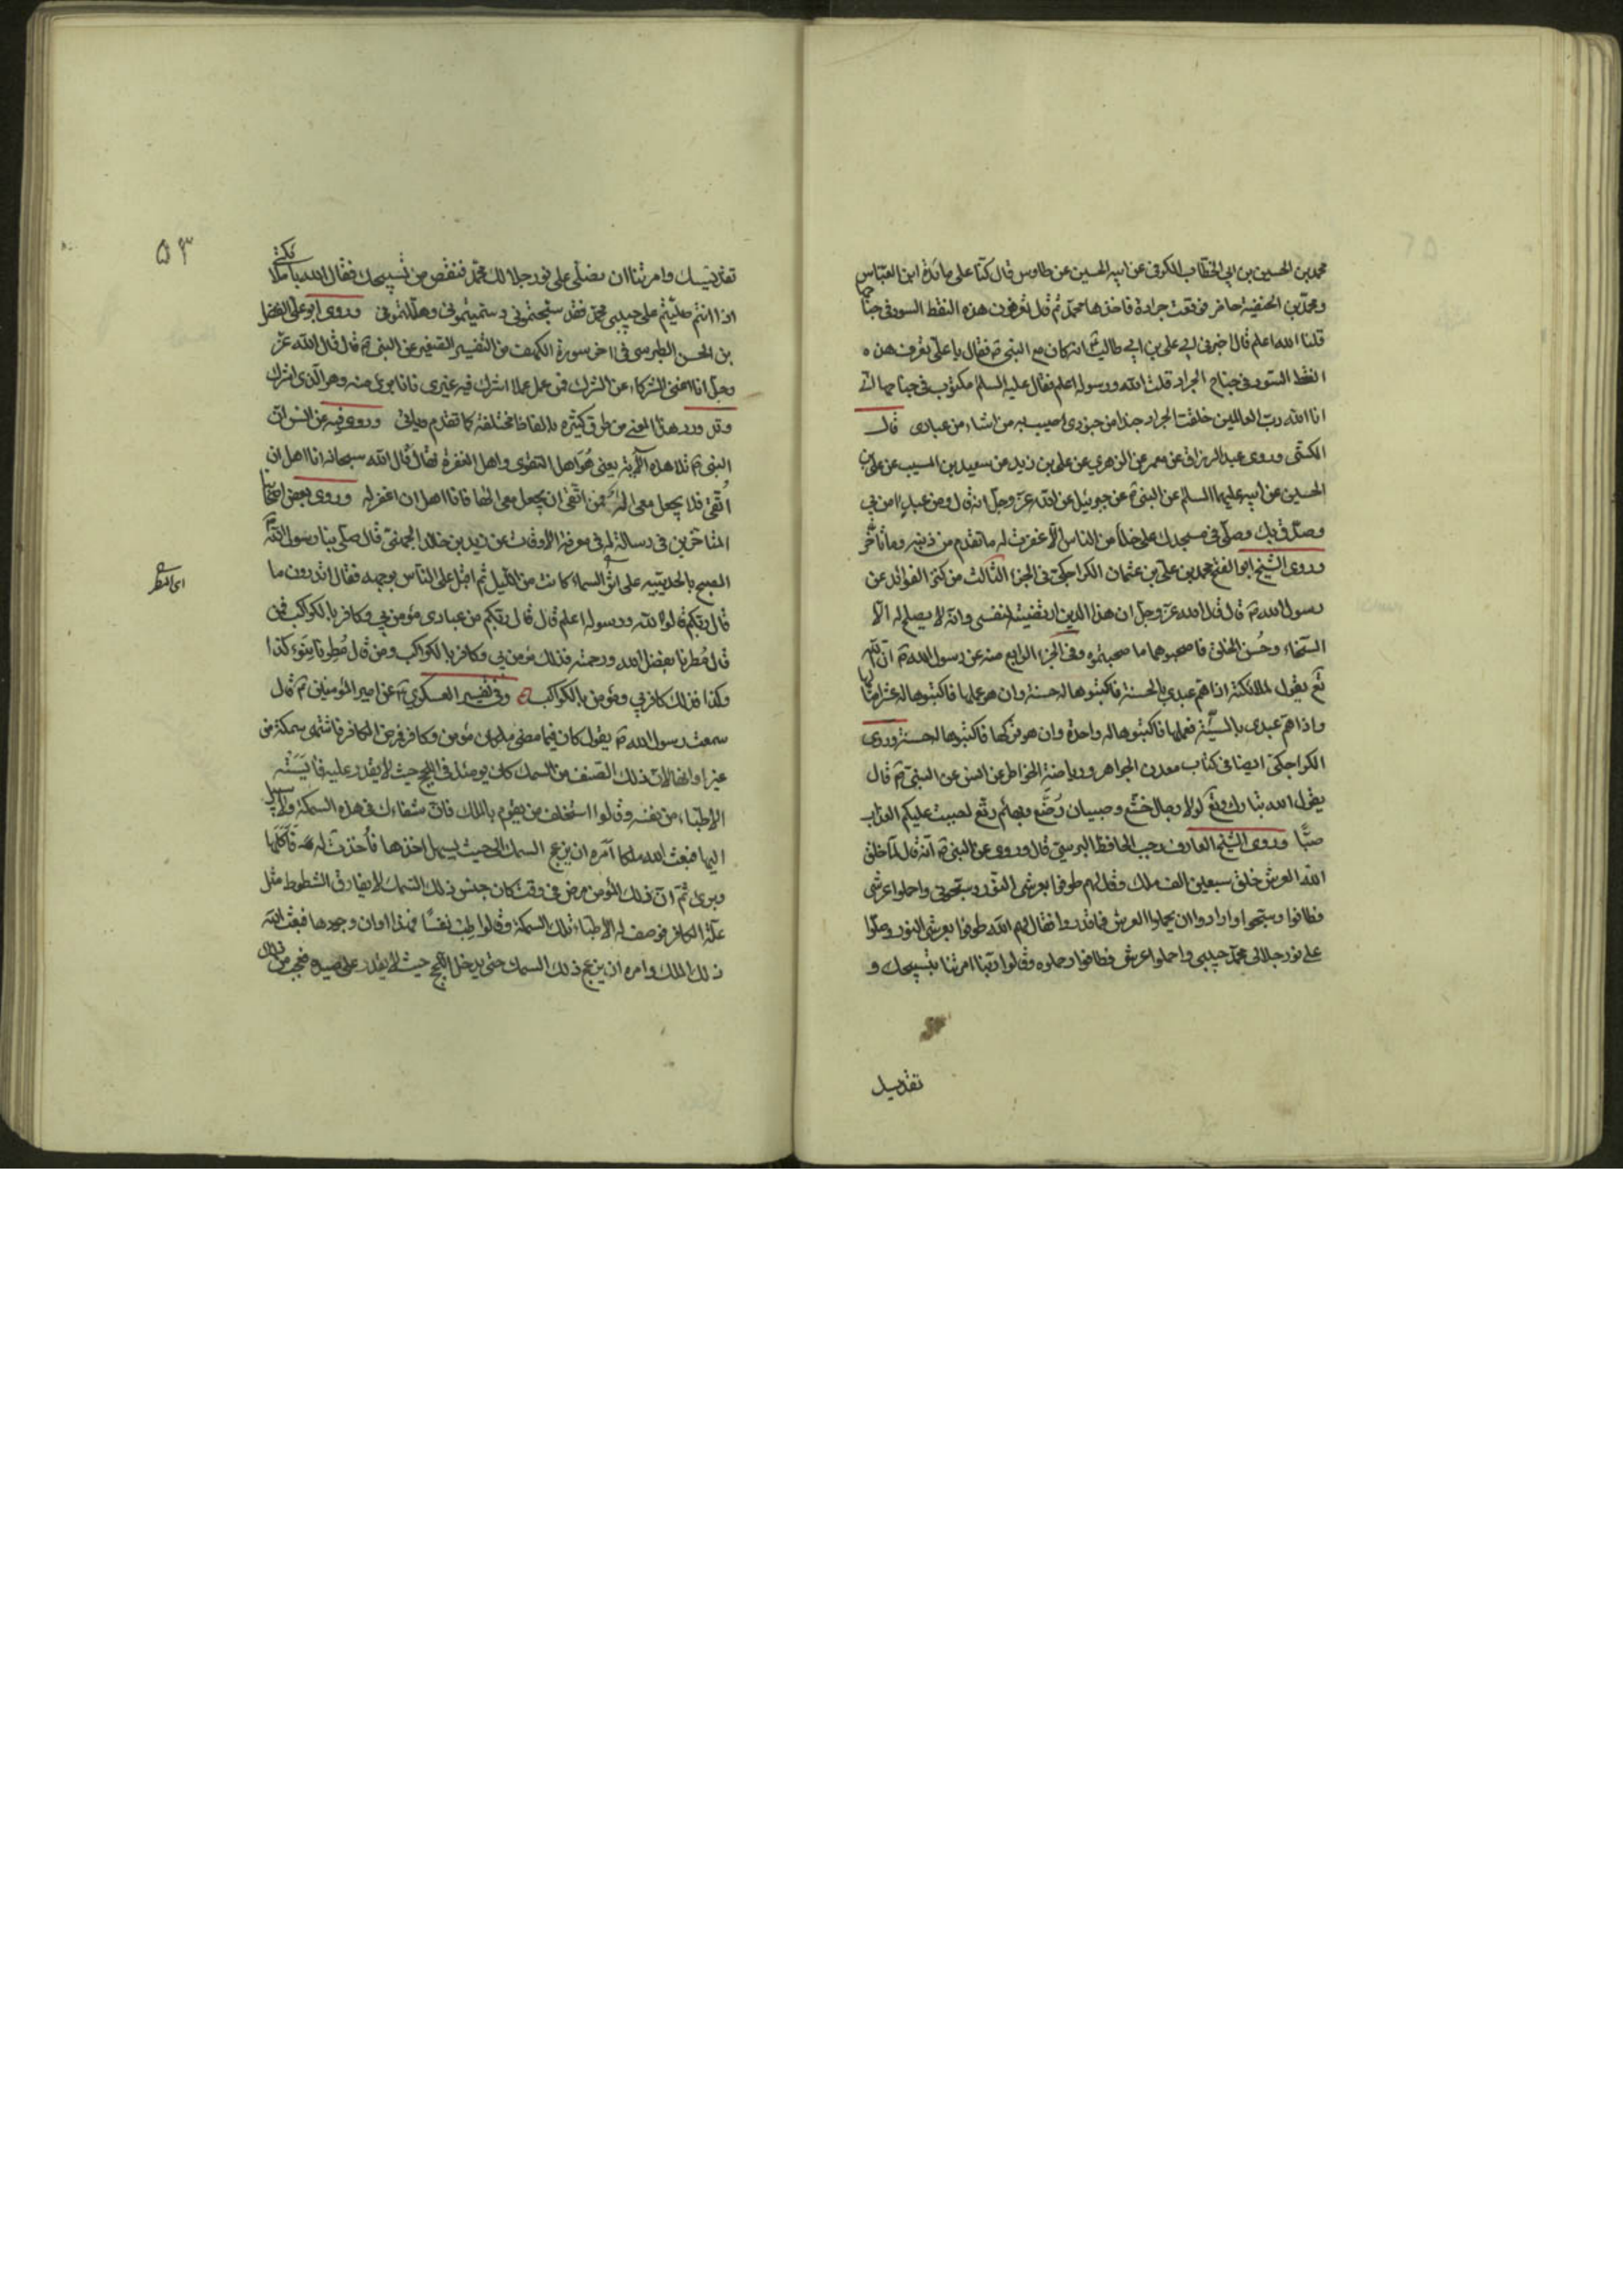 محمد بن الحسين بن ابي الخطاب الكوفي عن ابيه الحسين عن طاوس قال كنا على مائدة ابن العباس
ومحمد بن الحنفية حاضر فوقعت جرادة فاخذها محمد ثم قال تعرفون هذه النقط السود في جناحها
قلنا الله اعلم قال اخبرني ابي علي بن ابي طالب انه كان مع النبي ص فقال يا علي تعرف هذه
النقط السود في جناح الجراد قلت الله ورسوله اعلم فقال عليه السلم مكتوب في جناحها اني
انا الله رب العالمين خلقت الجراد جندا من جنودي اصيب به من اشاء من عبادي قال
الكشي وروى عبد الرزاق عن معمر عن الزهري عن علي بن زيد عن سعيد بن المسيب عن علي بن
الحسين عن ابيه عليهما السلم عن النبي ص عن جبرئيل عن الله عز وجل انه قال ومن عبد امن بي
وصدق بك وصلى في مسجدك على خلأ من الناس الا غفرت له ما تقدم من ذنبه وما تأخر
وروى الشيخ ابو الفتح محمد بن علي بن عثمان الكراجكي في الجزء الثالث من كنز الفوائد عن
رسول الله ص قال قال الله عز وجل ان هذا الدين ارتضيته لنفسي وانه لا يصلح له الا
السخاء وحسن الخلق فاصحبوهما ما صحبتموه وفي الجزء الرابع منه عن رسول الله ص ان الله
تع يقول لملائكته اذا هم عبدي بالحسنة فاكتبوها له حسنة وان هو عملها فاكتبوها له عشر امثالها
واذا هم عبدي بالسيئة فعملها فاكتبوها له واحدة وان هو تركها فاكتبوها له حسنة وروى
الكراجكي ايضا في كتاب معدن الجواهر ورياضة الخواطر عن انس عن النبي ص قال
يقول الله تبارك وتع لولا رجال خشع وصبيان رضع وبهائم رتع لصببت عليكم العذاب
صبا وروى الشيخ العارف رجب الحافظ البرسي قال وروى عن النبي ص انه قال لما خلق
الله العرش خلق سبعين الف ملك وقال لهم طوفوا بعرش النور وسبحوني واحملوا عرشي
فطافوا وسبحوا وارادوا ان يحملوا العرش فما قدروا فقال لهم الله طوفوا بعرش النور وصلوا
على نور جلالي محمد حبيبي واحملوا عرشي فطافوا وحملوه وقالوا ربنا امرتنا بتسبيحك و
تقديسك
٥٣
تقديسك وامرتنا ان نصلي على نور جلالك محمد فننقص من تسبيحك فقال الله يا ملائكتي
اذا انتم صليتم على حبيبي محمد فقد سبحتموني وهللتموني وروى ابو علي الفضل
بن الحسن الطبرسي في اخر سورة الكهف من التفسير الصغير عن النبي ص قال قال الله عز
وجل انا اغنى الشركاء عن الشرك فمن عمل عملا اشرك فيه غيري فانا برئ منه وهو للذي اشرك
وقد ورد هذا المعنى من طرق كثيرة بالفاظ مختلفة كما تقدم وياتي وروى فيه عن انس ان
النبي ص تلا هذه الاية يعني هو اهل التقوى واهل المغفرة فقال قال الله سبحانه انا اهل ان
اتقى فلا يجعل معي اله فمن اتقى ان يجعل معي الها فانا اهل ان اغفر له وروى بعض اصحابنا
المتاخرين في رسالة له في معرفة الاوقات عن زيد بن خالد الجهني قال صلى بنا رسول الله ص
الصبح بالحديبية على اثر السماء كانت من الليل ثم اقبل على الناس بوجهه فقال اتدرون ما
قال ربكم قالوا الله ورسوله اعلم قال قال ربكم من عبادي مؤمن بي وكافر بالكواكب فمن
قال مطرنا بفضل الله ورحمته فذلك مؤمن بي وكافر بالكواكب ومن قال مطرنا بنوء كذا
وكذا فذلك كافر بي ومؤمن بالكواكب وفي تفسير العسكري ع عن امير المؤمنين ع قال
سمعت رسول الله ص يقول كان فيما مضى ملكان مؤمن وكافر فمرض الكافر فاشتهى سمكة في
غير اوانها لان ذلك الصنف من السمك كان يومئذ في اللجج حيث لا يقدر عليه فايسته
الاطباء من نفسه وقالوا استخلف من يقوم بالملك فان شفاءك في هذه السمكة ولا سبيل
اليها فبعث الله ملكا امره ان يزعج السمك الى حيث يسهل اخذها فأخذت له فأكلها
وبرئ ثم ان ذلك المؤمن مرض في وقت كان جنس ذلك السمك لا يفارق الشطوط مثل
علة الكافر فوصف له الاطباء تلك السمكة وقالوا طب نفسا فهذا اوان وجودها فبعث الله
ذلك الملك وامره ان يزعج ذلك السمك حتى يدخل اللجج حيث لا يقدر على صيده فعجب من ذلك
اى المطر